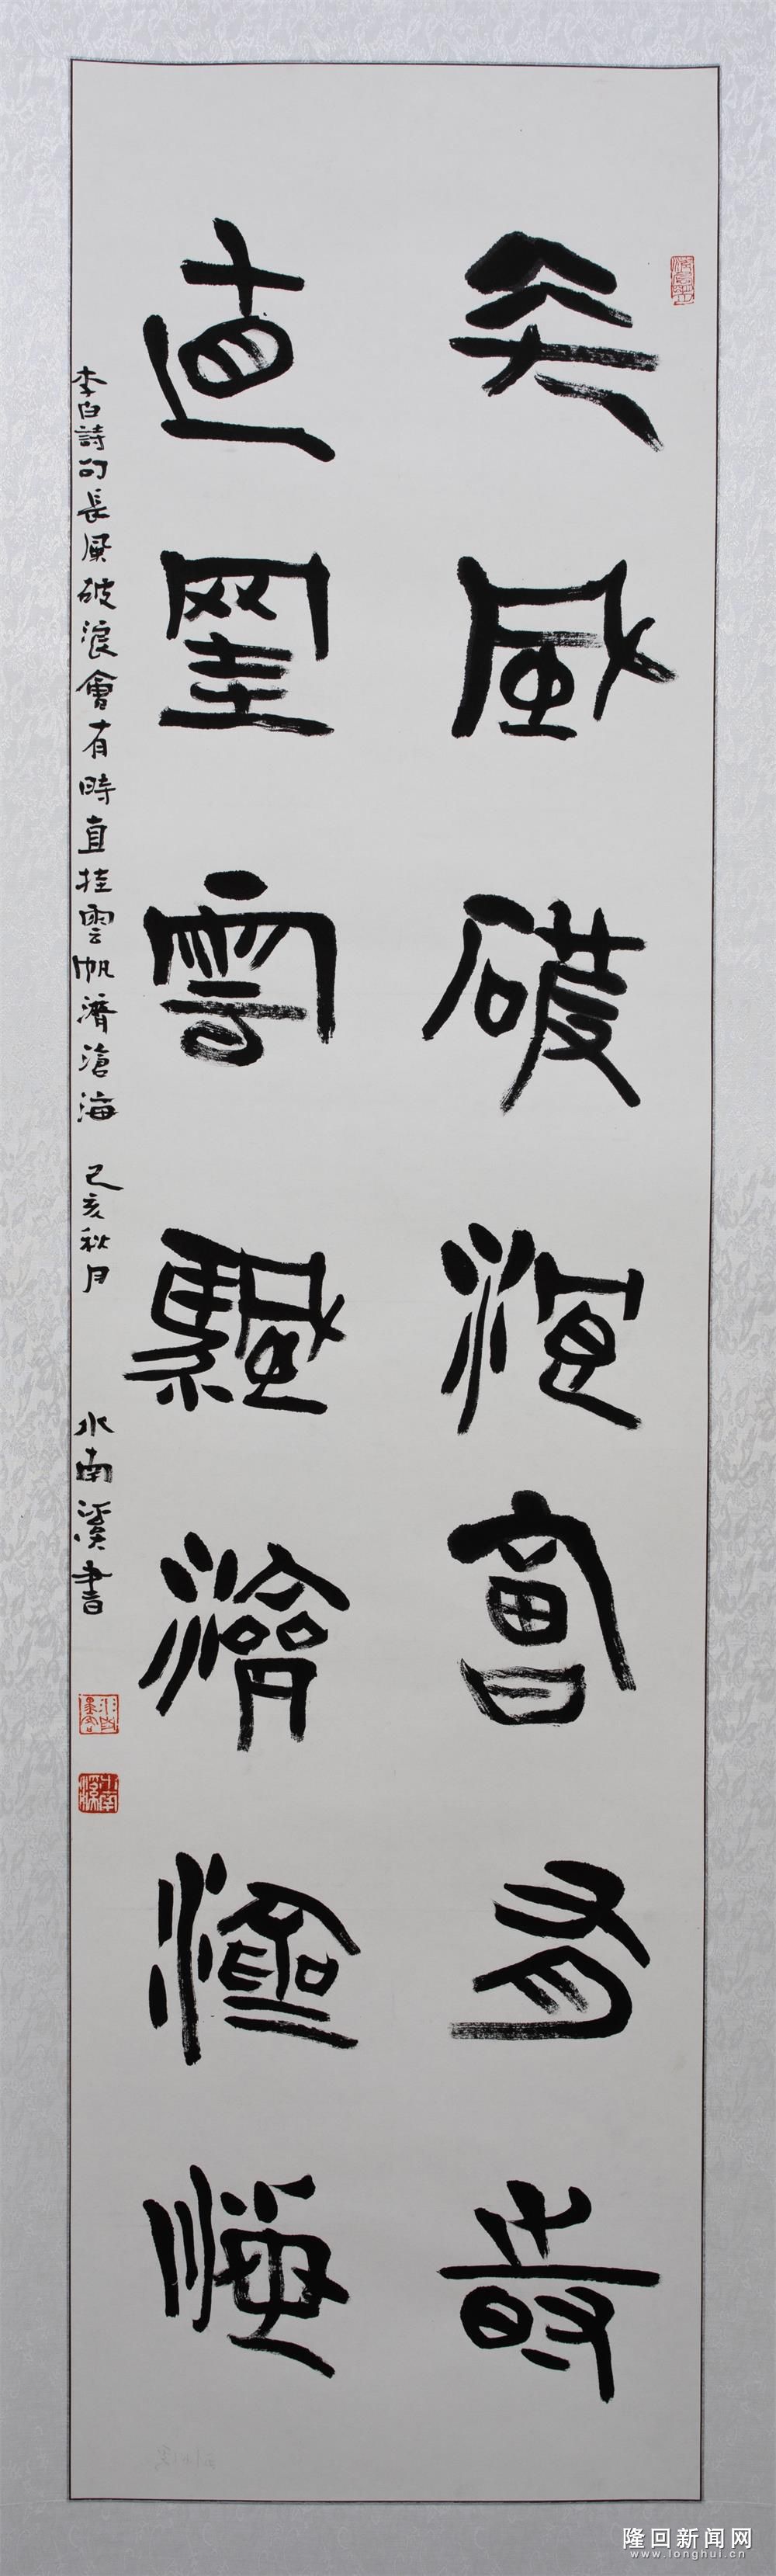 長風破浪會有時
直挂雲帆濟滄海
李白詩句長風破浪會有時直挂雲帆濟滄海 己亥秋月 水南溪書
隆回新闻网
www.longhui.cn